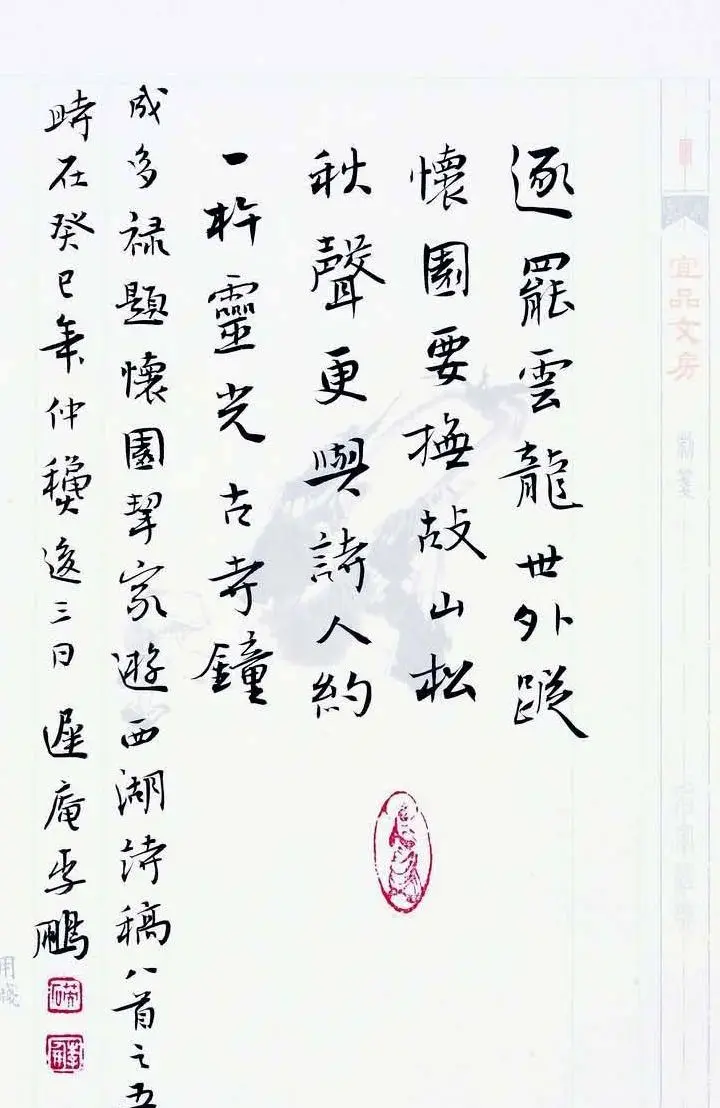 宜品文房
逐罷雲龍世外蹤
懷園要撫故山松
秋聲更與詩人約
一杵靈光古寺鐘
成多祿題懷園挈家遊西湖詩稿八首之五
時在癸巳年仲龝後三日 遲庵李鵬
用箋